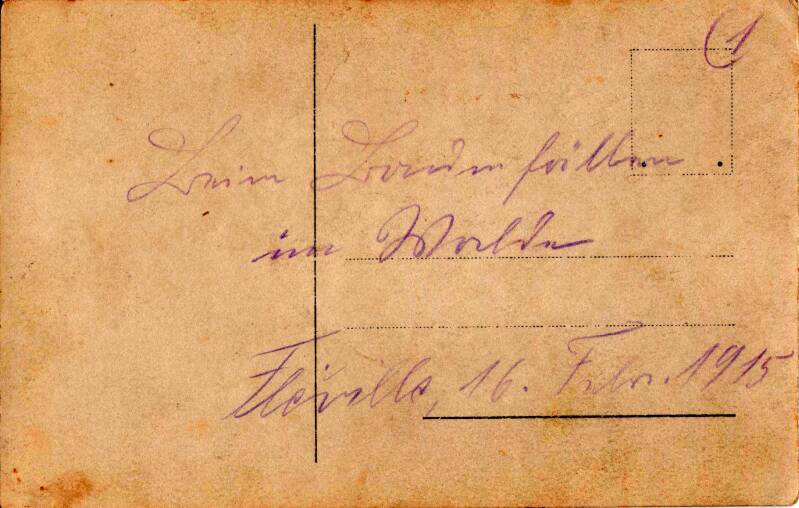 1
Beim Baumfällen
im Walde
Fléville, 16. Febr. 1915